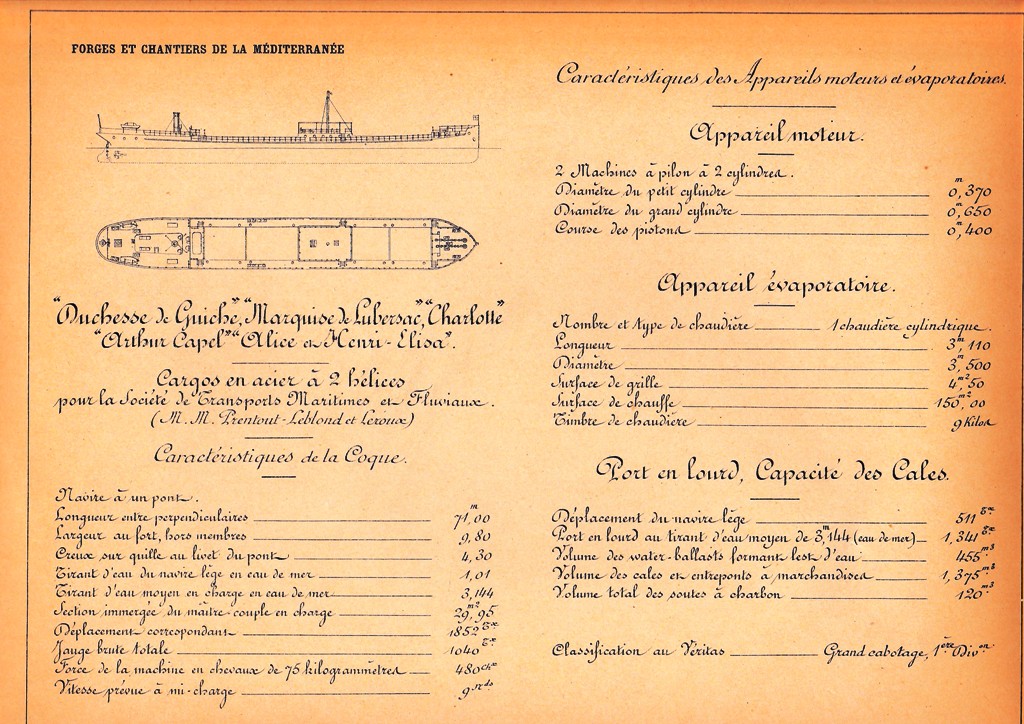 FORGES ET CHANTIERS DE LA MÉDITERRANÉE
"Duchesse de Guiche", "Marquise de Lubersac", "Charlotte"
"Arthur Capel" "Alice et Henri-Elisa".
Cargos en acier à 2 hélices
pour la Société de Transports Maritimes et Fluviaux.
(M. M. Prentout-Leblond et Leroux)
Caractéristiques de la Coque.
Navire à un pont.
Longueur entre perpendiculaires 71,m00
Largeur au fort, hors membres 9,80
Creux sur quille au livet du pont 4,30
Tirant d'eau du navire lège en eau de mer 1,01
Tirant d'eau moyen en charge en eau de mer 3,144
Section immergée du maître couple en charge 29,m295
Déplacement correspondant 1852Tx
Jauge brute totale 1040Tx
Force de la machine en chevaux de 75 kilogrammètres 480chx
Vitesse prévue à mi-charge 9nds
Caractéristiques des Appareils moteurs et évaporatoires.
Appareil moteur.
2 Machines à pilon à 2 cylindres.
Diamètre du petit cylindre 0,m370
Diamètre du grand cylindre 0,m650
Course des pistons 0,m400
Appareil évaporatoire.
Nombre et type de chaudière 1 chaudière cylindrique.
Longueur 3,m110
Diamètre 3,500
Surface de grille 4,m250
Surface de chauffe 150,m200
Timbre de chaudière 9 Kilos
Port en lourd, Capacité des Cales.
Déplacement du navire lège 511Tx
Port en lourd au tirant d'eau moyen de 3,m144 (eau de mer) 1,341Tx
Volume des water-ballasts formant lest d'eau 455m3
Volume des cales et entreponts à marchandises 1,375m3
Volume total des soutes à charbon 120m3
Classification au Véritas Grand cabotage, 1ère Divon